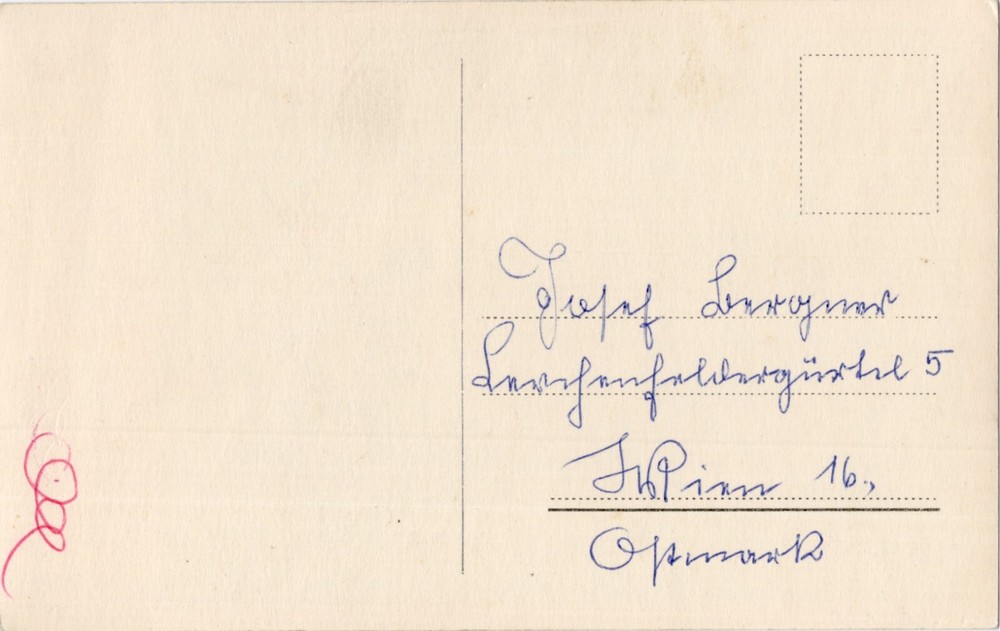 Josef Bergner
Lerchenfeldergürtel 5
Wien 16.,
Ostmark